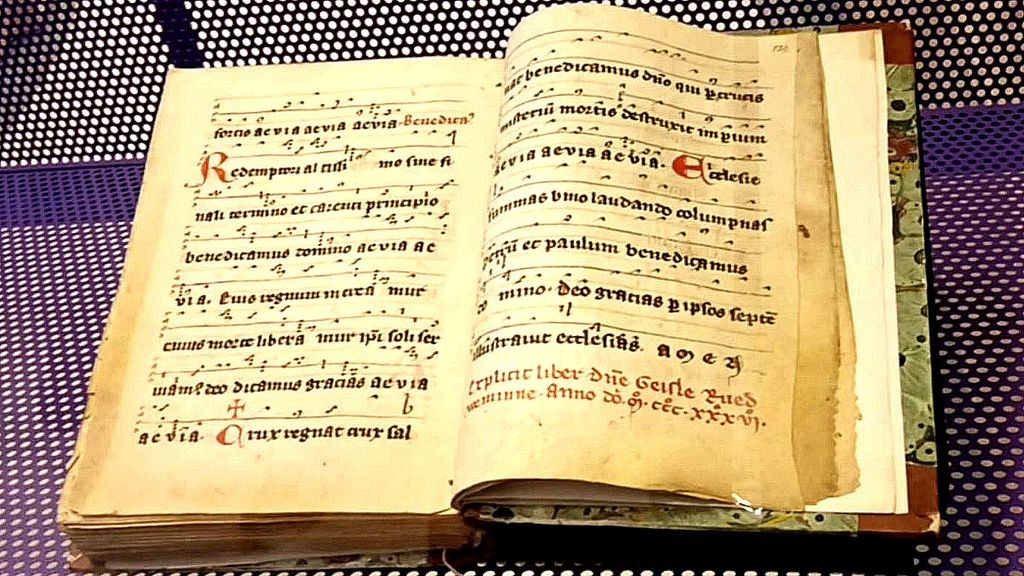 fortis aevia aevia aevia. Benedica
Redemptori altissi mo sine fi
nali termino et carenti principio
benedicamus domino aevia ae
via. Cuius regnum in terra mur
cuius morte libera mur ipi soli ser
viam9 deo dicamus gracias aevia
aevia. Crux regnat crux sal
vat benedicamus dno qui per crucis
misterium mortis destruxit imperium
aevia aevia aevia. Ecclesie
summas vivo laudando columpnas
petrum et paulum benedicamus
do mino. deo gracias per ipsos septem
illustravit ecclesias. a m e n
Explicit liber dne Geisle Rued
anno do. M. ccc. xxxvi.